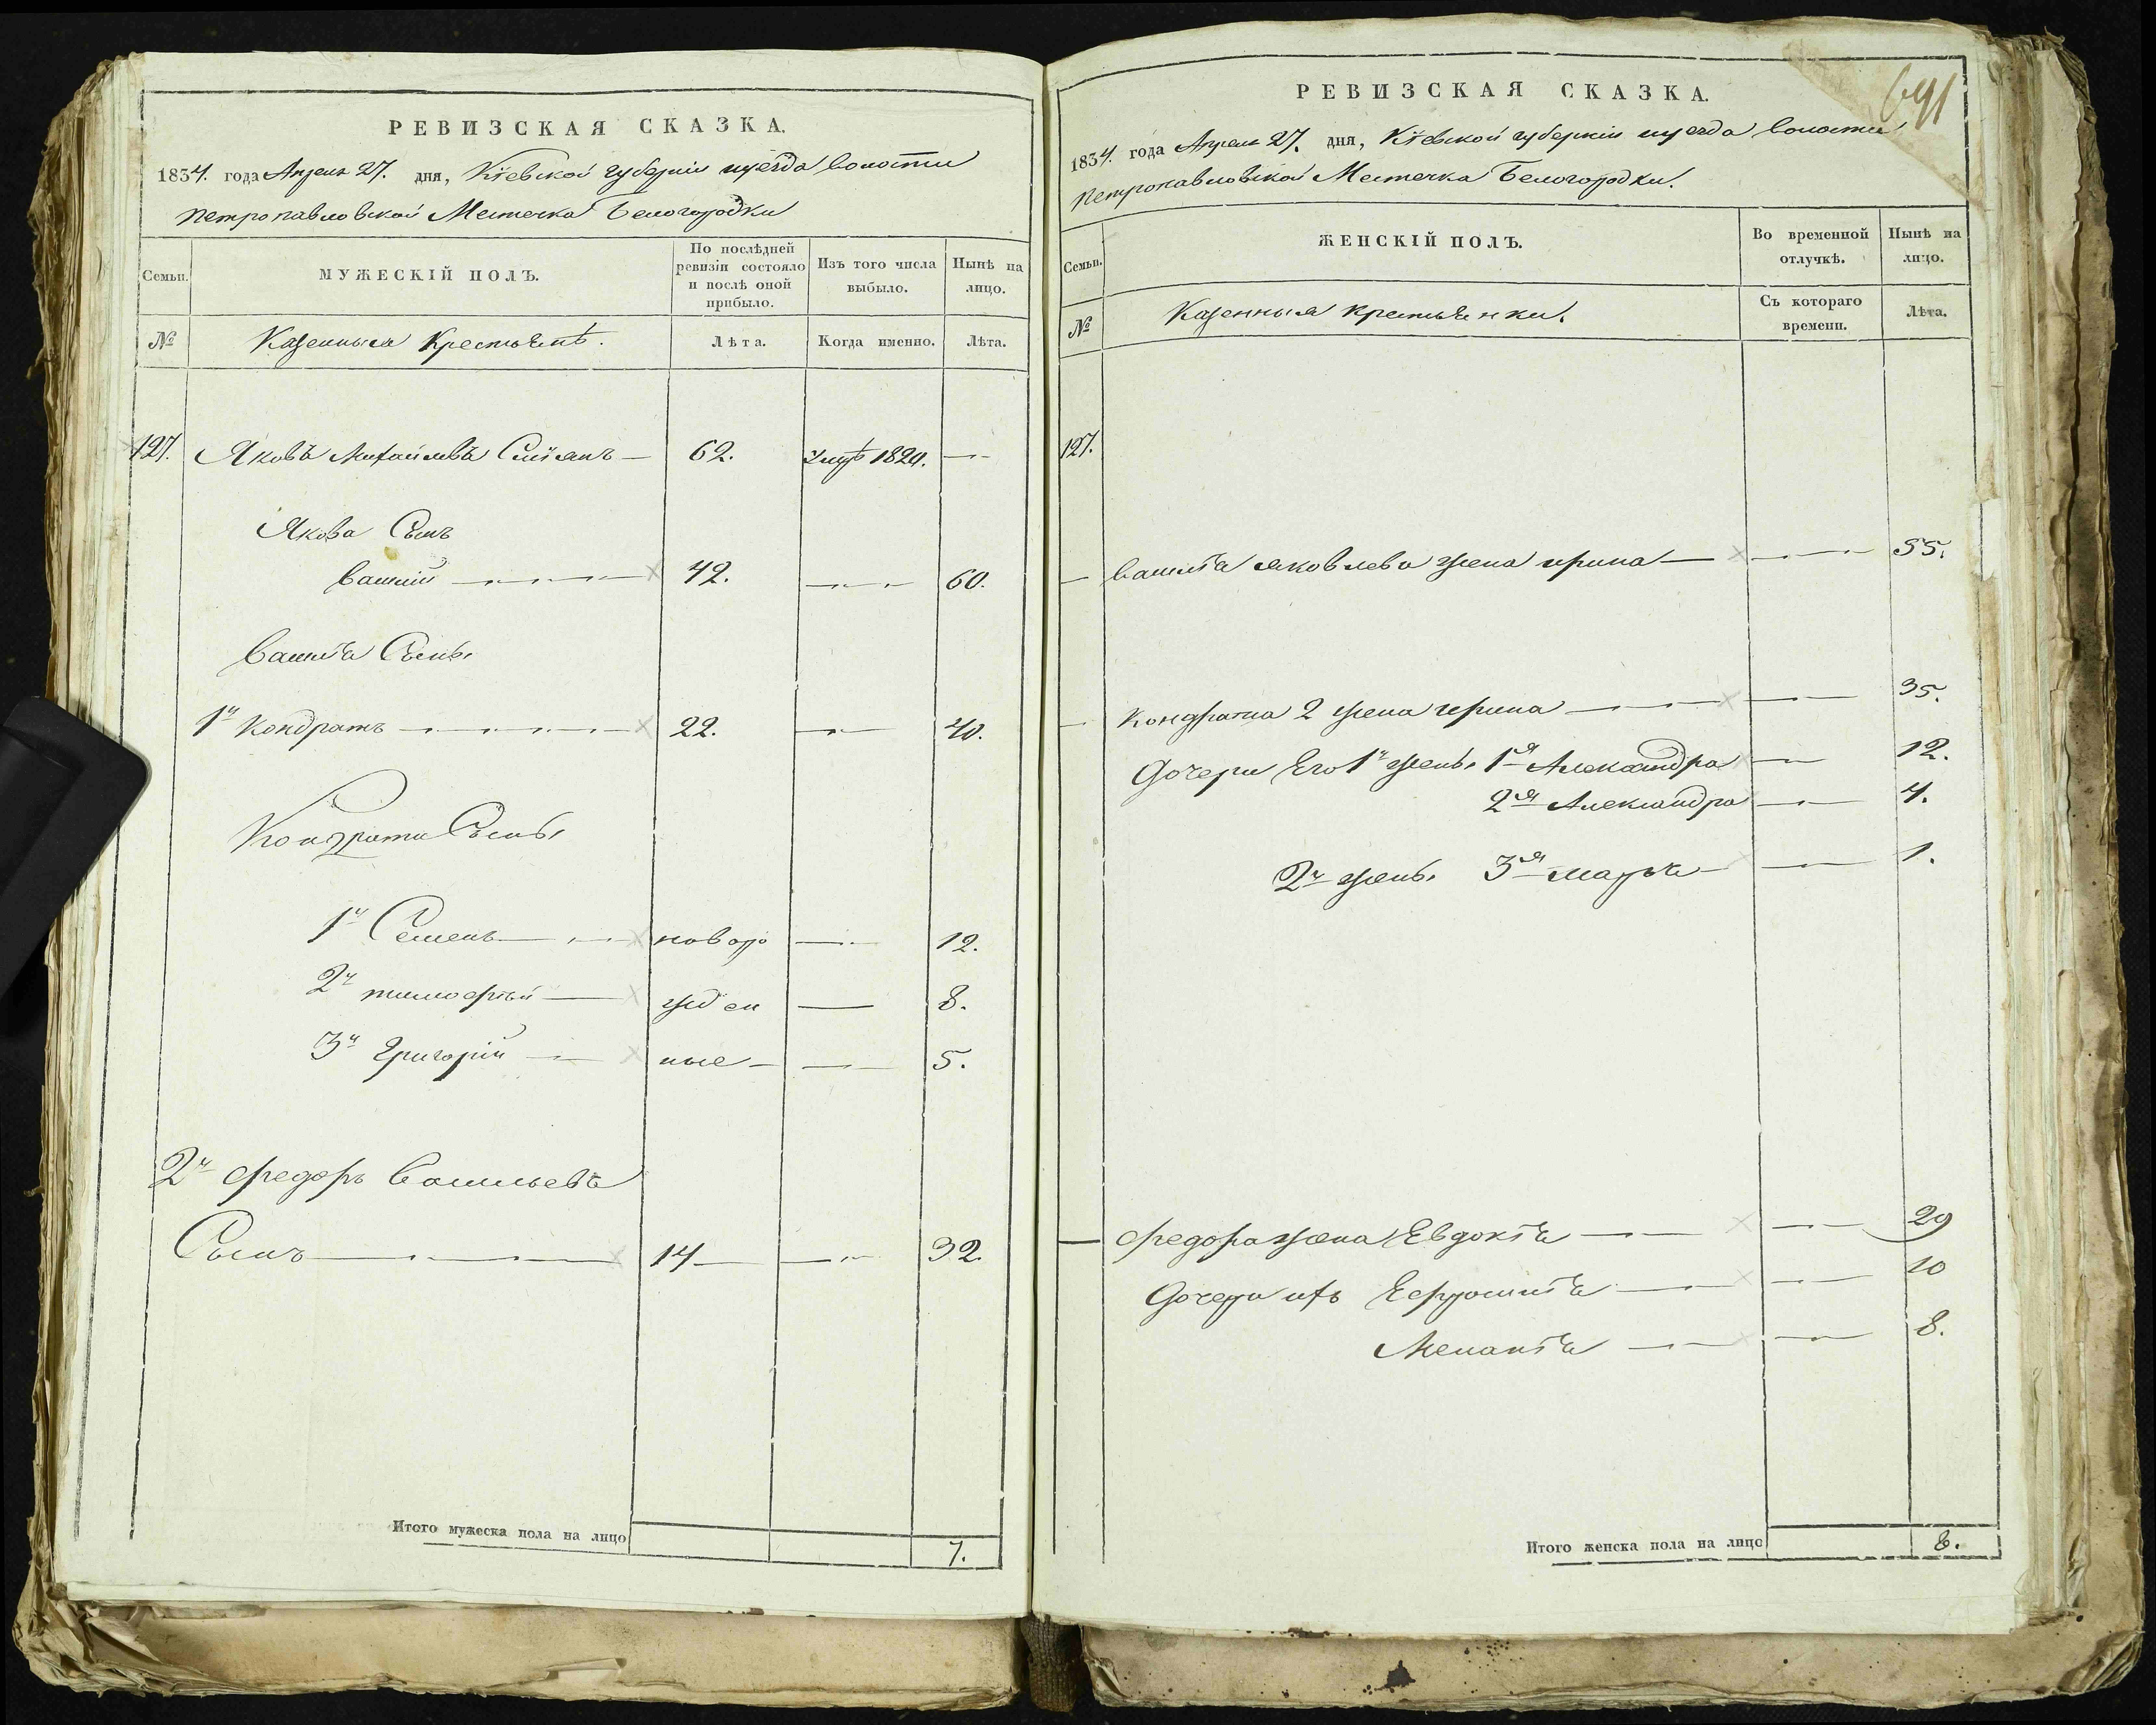 РЕВИЗСКАЯ СКАЗКА.
1834. года Апреля 27. дня, Кіевской губерніи иуезда волости
петропавловской Местечка Белогородки
Семьи.
МУЖЕСКІЙ ПОЛЪ.
По послѣдней ревизіи состояло и послѣ оной прибыло.
Изъ того числа выбыло.
Нынѣ на лицо.
№
Казенныя Крестьянѣ.
Лѣта.
Когда именно.
Лѣта.
127. Яковъ Михайловъ 62. 1824. —
Якова Сынъ
Василій 42. — 60.
Василія Сынъ
1й Кондратъ 22. — 40.
Кондрата Сынъ
1й Семенъ новоро — 12.
2й тимофѣй жден — 8.
3й Григорій ные — 5.
2й Федоръ Васильевъ
Сынъ 14 — 32.
Итого мужеска пола на лицо 7.
691
РЕВИЗСКАЯ СКАЗКА.
1834. года Апреля 27. дня, Кіевской губерніи иуезда волости
петропавловской Местечка Белогородки.
Семьи.
ЖЕНСКІЙ ПОЛЪ.
Во временной отлучкѣ.
Нынѣ на лицо.
№
Казенныя крестьянки.
Съ котораго времени.
Лѣта.
127.
— Василія яковлева жена ирина — 55.
— Кондрата 2 жена ирина — 35.
Дочери Его 1й жены 1я Александра — 12.
2я Александра — 4.
2й жены 3я марья — 1.
— Федора жена Евдокія — 29
Дочери ихъ Ефросинія — 10
Меланія — 8.
Итого женска пола на лицо 8.